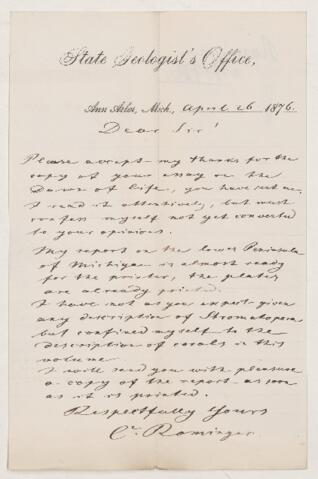 State Geologist's Office,
Ann Arbor, Mich., April 26 1876.
Dear Sir!
Please accept my thanks for the
copy of your essay on the
Dawn of Life, you have sent me.
I read it attentively, but must
confess myself not yet converted
to your opinions.
My report on the lower Peninsula
of Michigan is almost ready
for the printer, the plates
are already printed.
I have not as you expect given
any description of Stromatopora
but confined myself to the
description of corals in this
volume.
I will send you with pleasure
a copy of the report as soon
as it is printed.
Respectfully Yours
C. Rominger